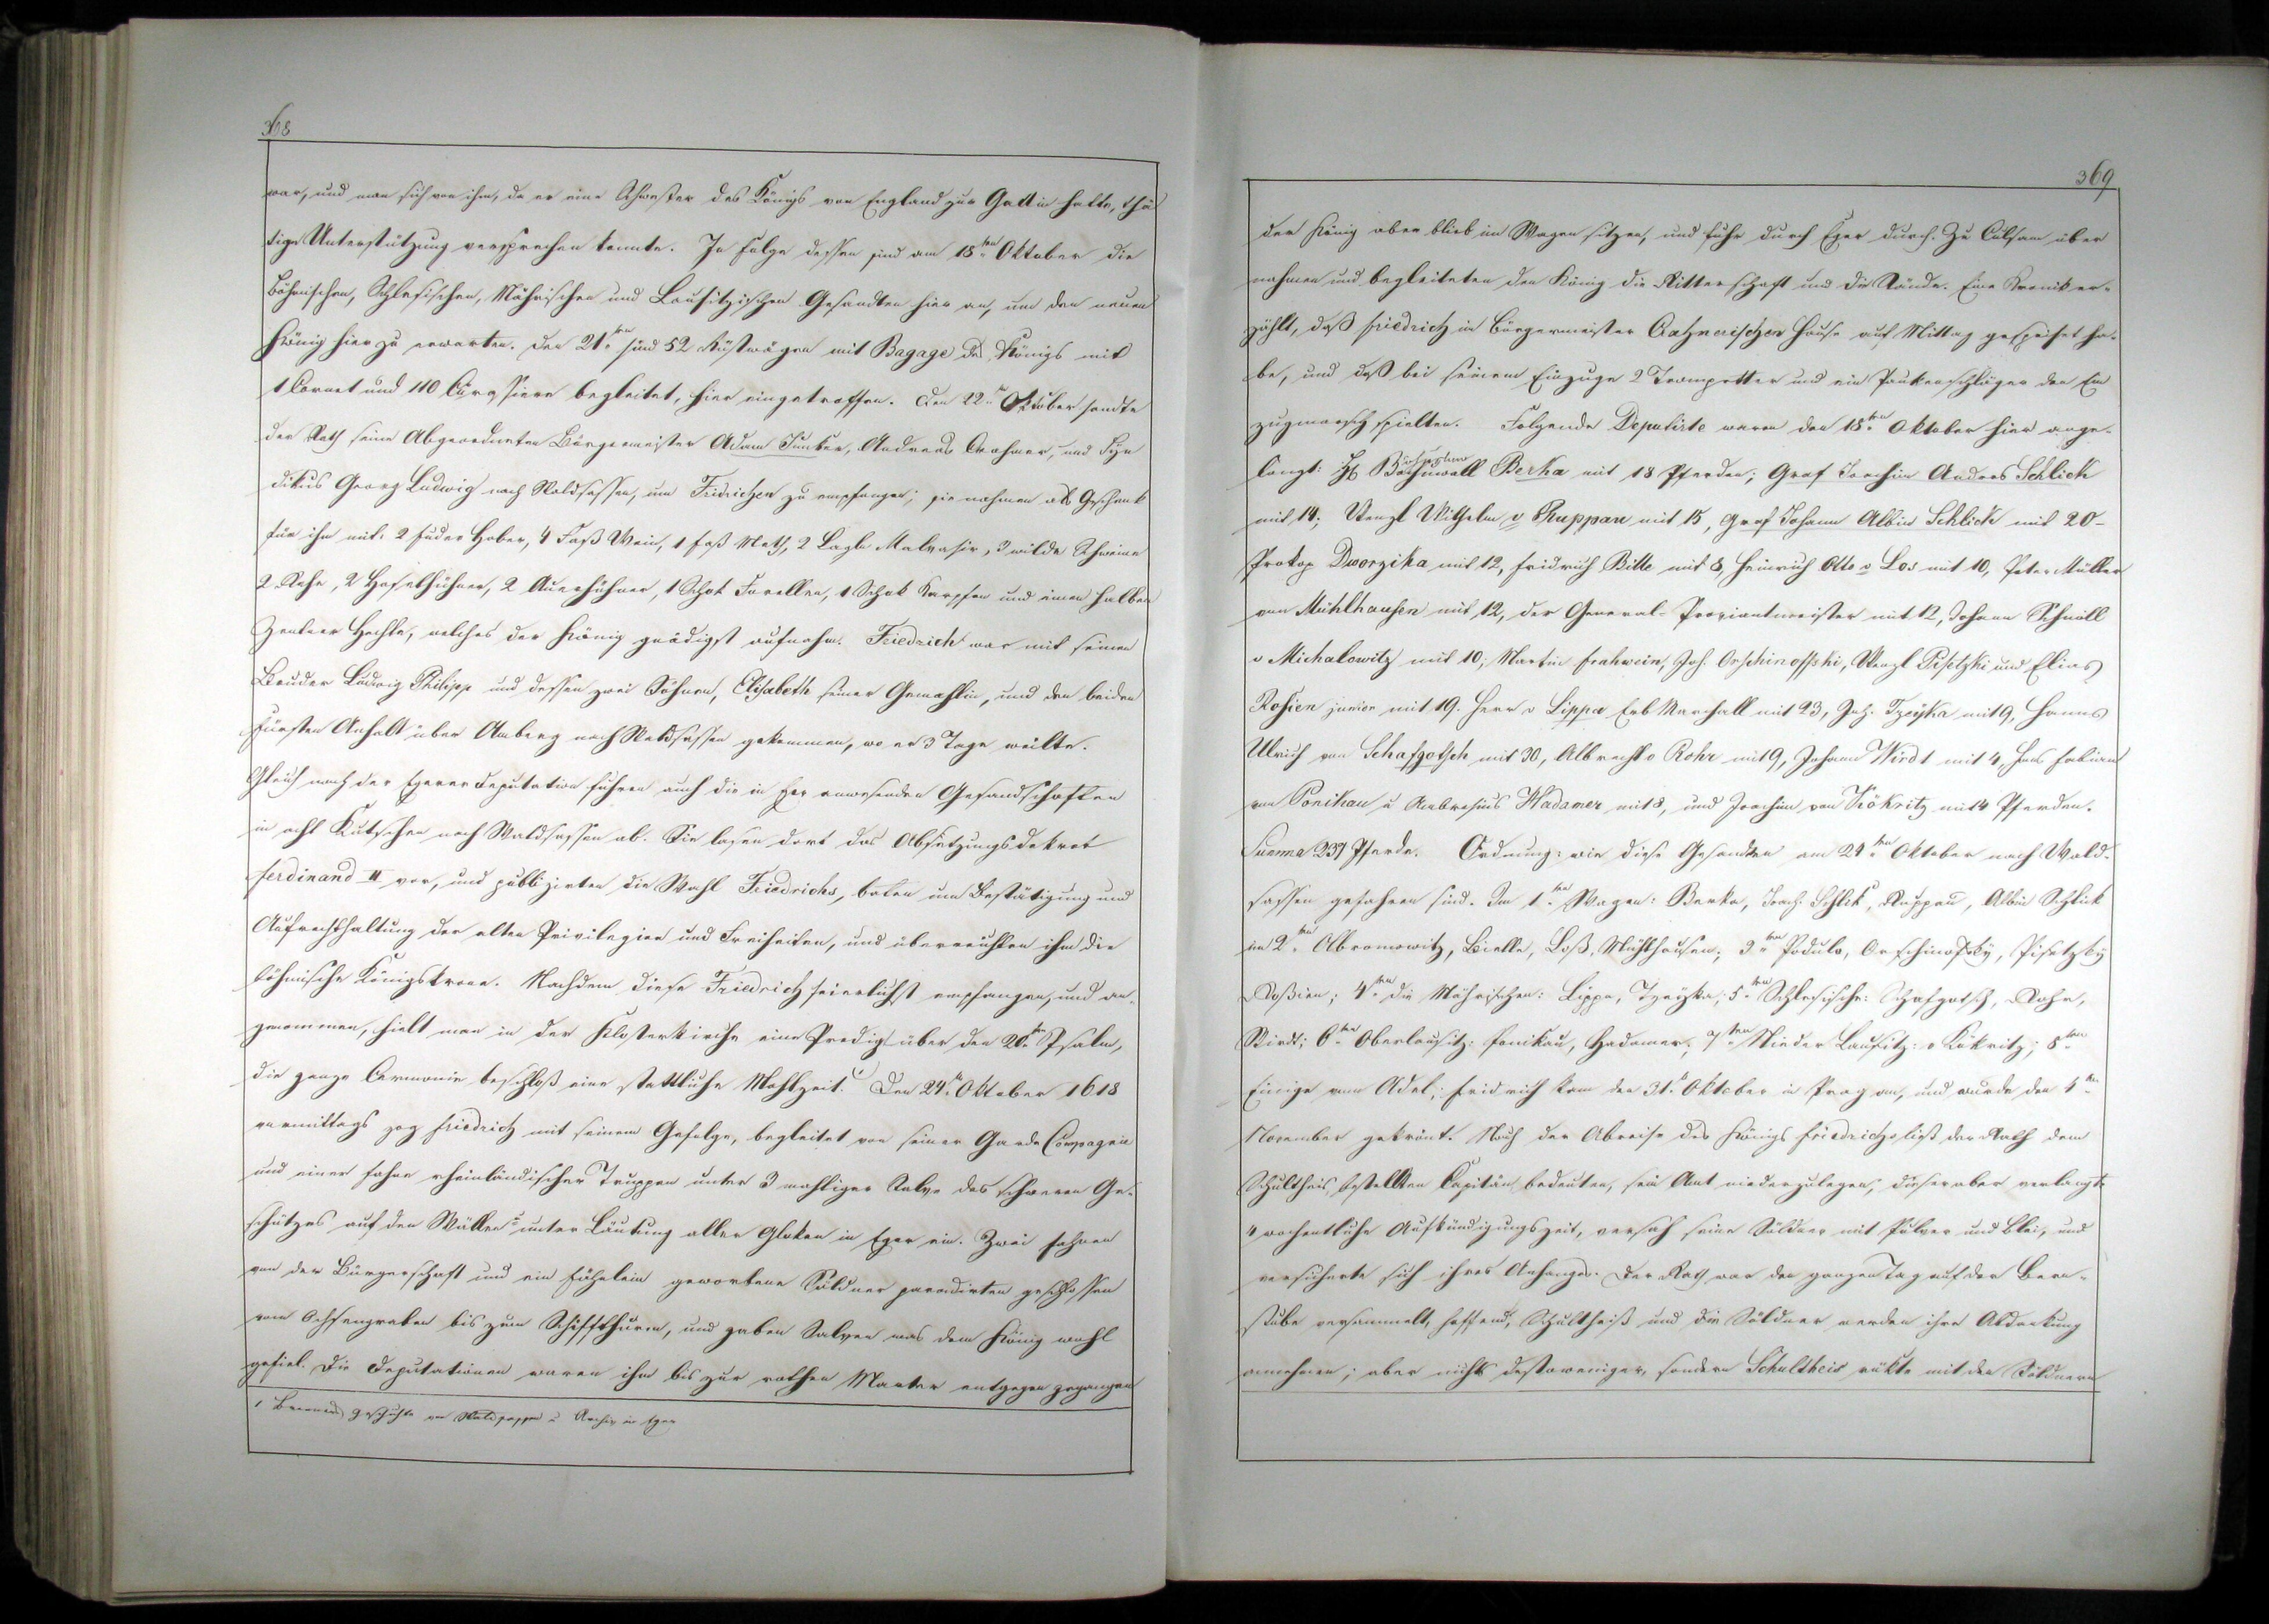 368
war, und man sich von ihm, da er eine Schwester des Königs von England zur Gattin hatte, thä
tige Unterstützung versprechen konnte. In Folge dessen sind am 18ten Oktober die
Böhmischen, Schlesischen, Mährischen und Lausitzischen Gesandten hier an, um den neuen
König hier zu erwarten. Den 21ten sind 52 Rüstwägen mit Bagage des Königs mit
1 Cornet und 110 Cürassiere begleitet, hier eingetroffen. Den 22ten Oktober sandte
der Rath seine Abgeordneten Bürgermeister Adam Junker, Andreas Crahmer, und Syn
dikus Georg Ludwig nach Waldsassen, um Fridrichen zu empfangen; sie nahmen als Geschenk
für ihn mit: 2 Fuder Haber, 4 Faß Wein, 1 Faß Meth, 2 Lagln Malvasir, 3 wilde Schweine
2 Rehe, 2 Haselhühner, 2 Auerhühner, 1 Schok Forellen, 1 Schok Karpfen und einen halben
Zentner Hechte, welches der König gnädigst aufnahm. Friedrich war mit seinem
Bruder Ludwig Philipp und dessen zwei Söhnen, Elisabeth seiner Gemahlin, und den beiden
Fürsten Anhalt über Amberg nach Waldsassen gekommen, wo er 3 Tage weilte.
Gleich nach der Egerer Deputation fuhren auch die in Eger anwesenden Gesandschaften
in acht Kutschen nach Waldsassen ab. Sie lasen dort das Absetzungsdekret
Ferdinand II vor, und publizirten die Wahl Friedrichs, baten um Bestätigung und
Aufrechthaltung der alten Privilegien und Freiheiten, und überreichten ihm die
böhmische Königskrone. Nachdem diese Friedrich feierlichst empfangen, und an¬
genommen, hielt man in der Klosterkirche eine Predigt über den 20ten Psalm,
die ganze Ceremonie beschloß eine stattliche Mahlzeit. 1) Den 24ten Oktober 1618
vormittags zog Friedrich mit seinem Gefolge, begleitet von seiner Garde Compagnie
und einer Fahne rheinländischer Truppen unter 3 mahliger Salve des schweren Ge¬
schützes auf den Wällen u unter Läutung aller Gloken in Eger ein. Zwei Fahnen
von der Bürgerschaft und ein Fähnlein geworbene Söldner paradirten geschlossen
vom Ochsengraben bis zum Schiffthurm, und gaben Salven was dem König wohl
gefiel. Die Deputationen waren ihm bis zur rothen Marter entgegen gegangen
1 Geschichte von Waldsassen u Archiv in Eger
369
der König aber blieb im Wagen sitzen, und fuhr durch Eger durch. Zu Culsam über
nahmen und begleiteten den König die Ritterschaft und die Stände. Eine Kronik er¬
zählt, daß Friedrich im Bürgermeister Crahmerischen Hause auf Mittag gespeiset ha¬
be, und daß bei seinem Einzuge 2 Trompetter und ein Paukenschläger den Ein
zugmarsch spielten. Folgende Deputirte waren den 18ten Oktober hier ange¬
langt: H Berka mit 18 Pferden; Graf Joachim Andres Schlick
mit 14; Wenzl Wilhelm v Ruppau mit 15, Graf Johann Albin Schlick mit 20
Prokop Dworzika mit 12, Fridrich Bille mit 8, Heinrich Otto v Los mit 10, Peter Müller
von Mühlhausen mit 12, der General-Proviantmeister mit 12, Johann Schnöll
v Michalowitz mit 10, Martin Fruhwein, Joh. Orschinofski, Wenzl Pisetzki und Elias
Rosien junior mit 19. Herr v Lippa Erb Marschall mit 23, Joh. Tzeyka mit 9, Hanns
Ulrich von Schafgotsch mit 30, Albrecht v Rohr mit 9, Johann Wirdt mit 4, Hans Fabian
von Ponikau u Ambrosius Hadamer mit 8, und Joachim von Kökritz mit 4 Pferden.
Summa 237 Pferde. Ordnung: wie diese Gesandten am 24ten Oktober nach Wald¬
sassen gefahren sind. Im 1ten Wagen: Berka, Joach. Schlik, Ruppau, Albin Schlick
im 2ten Abromowitz, Bielle, Loß, Mühlhausen; 3ten Podula, Orschinofsky, Pisetzky
Roßien; 4ten die Mährischen: Lippa, Tzeyka; 5ten Schlesische: Schafgotsch, Rohr,
Wirdt; 6ten Oberlausitz: Ponikau, Hadamer; 7ten Nieder Lausitz: v Kökritz; 8ten
Einige vom Adel; Fridrich kam den 31t Oktober in Prag an, und wurde den 4ten
November gekrönt. Nach der Abreise des Königs Friedrichs ließ der Rath dem
Schultheis bestellten Kapitän bedeuten, sein Amt niederzulegen, dieser aber verlangte
4 wochentliche Aufkündigungszeit, versah seine Söldner mit Pulver und Blei, und
versicherte sich ihres Anhanges. Der Rath war den ganzen Tag auf der
stube versammelt, hoffend, Schultheiß und die Söldner werden ihre Abdankung
annehmen; aber nichts destoweniger, sondern Schultheis rükte mit den Söldnern